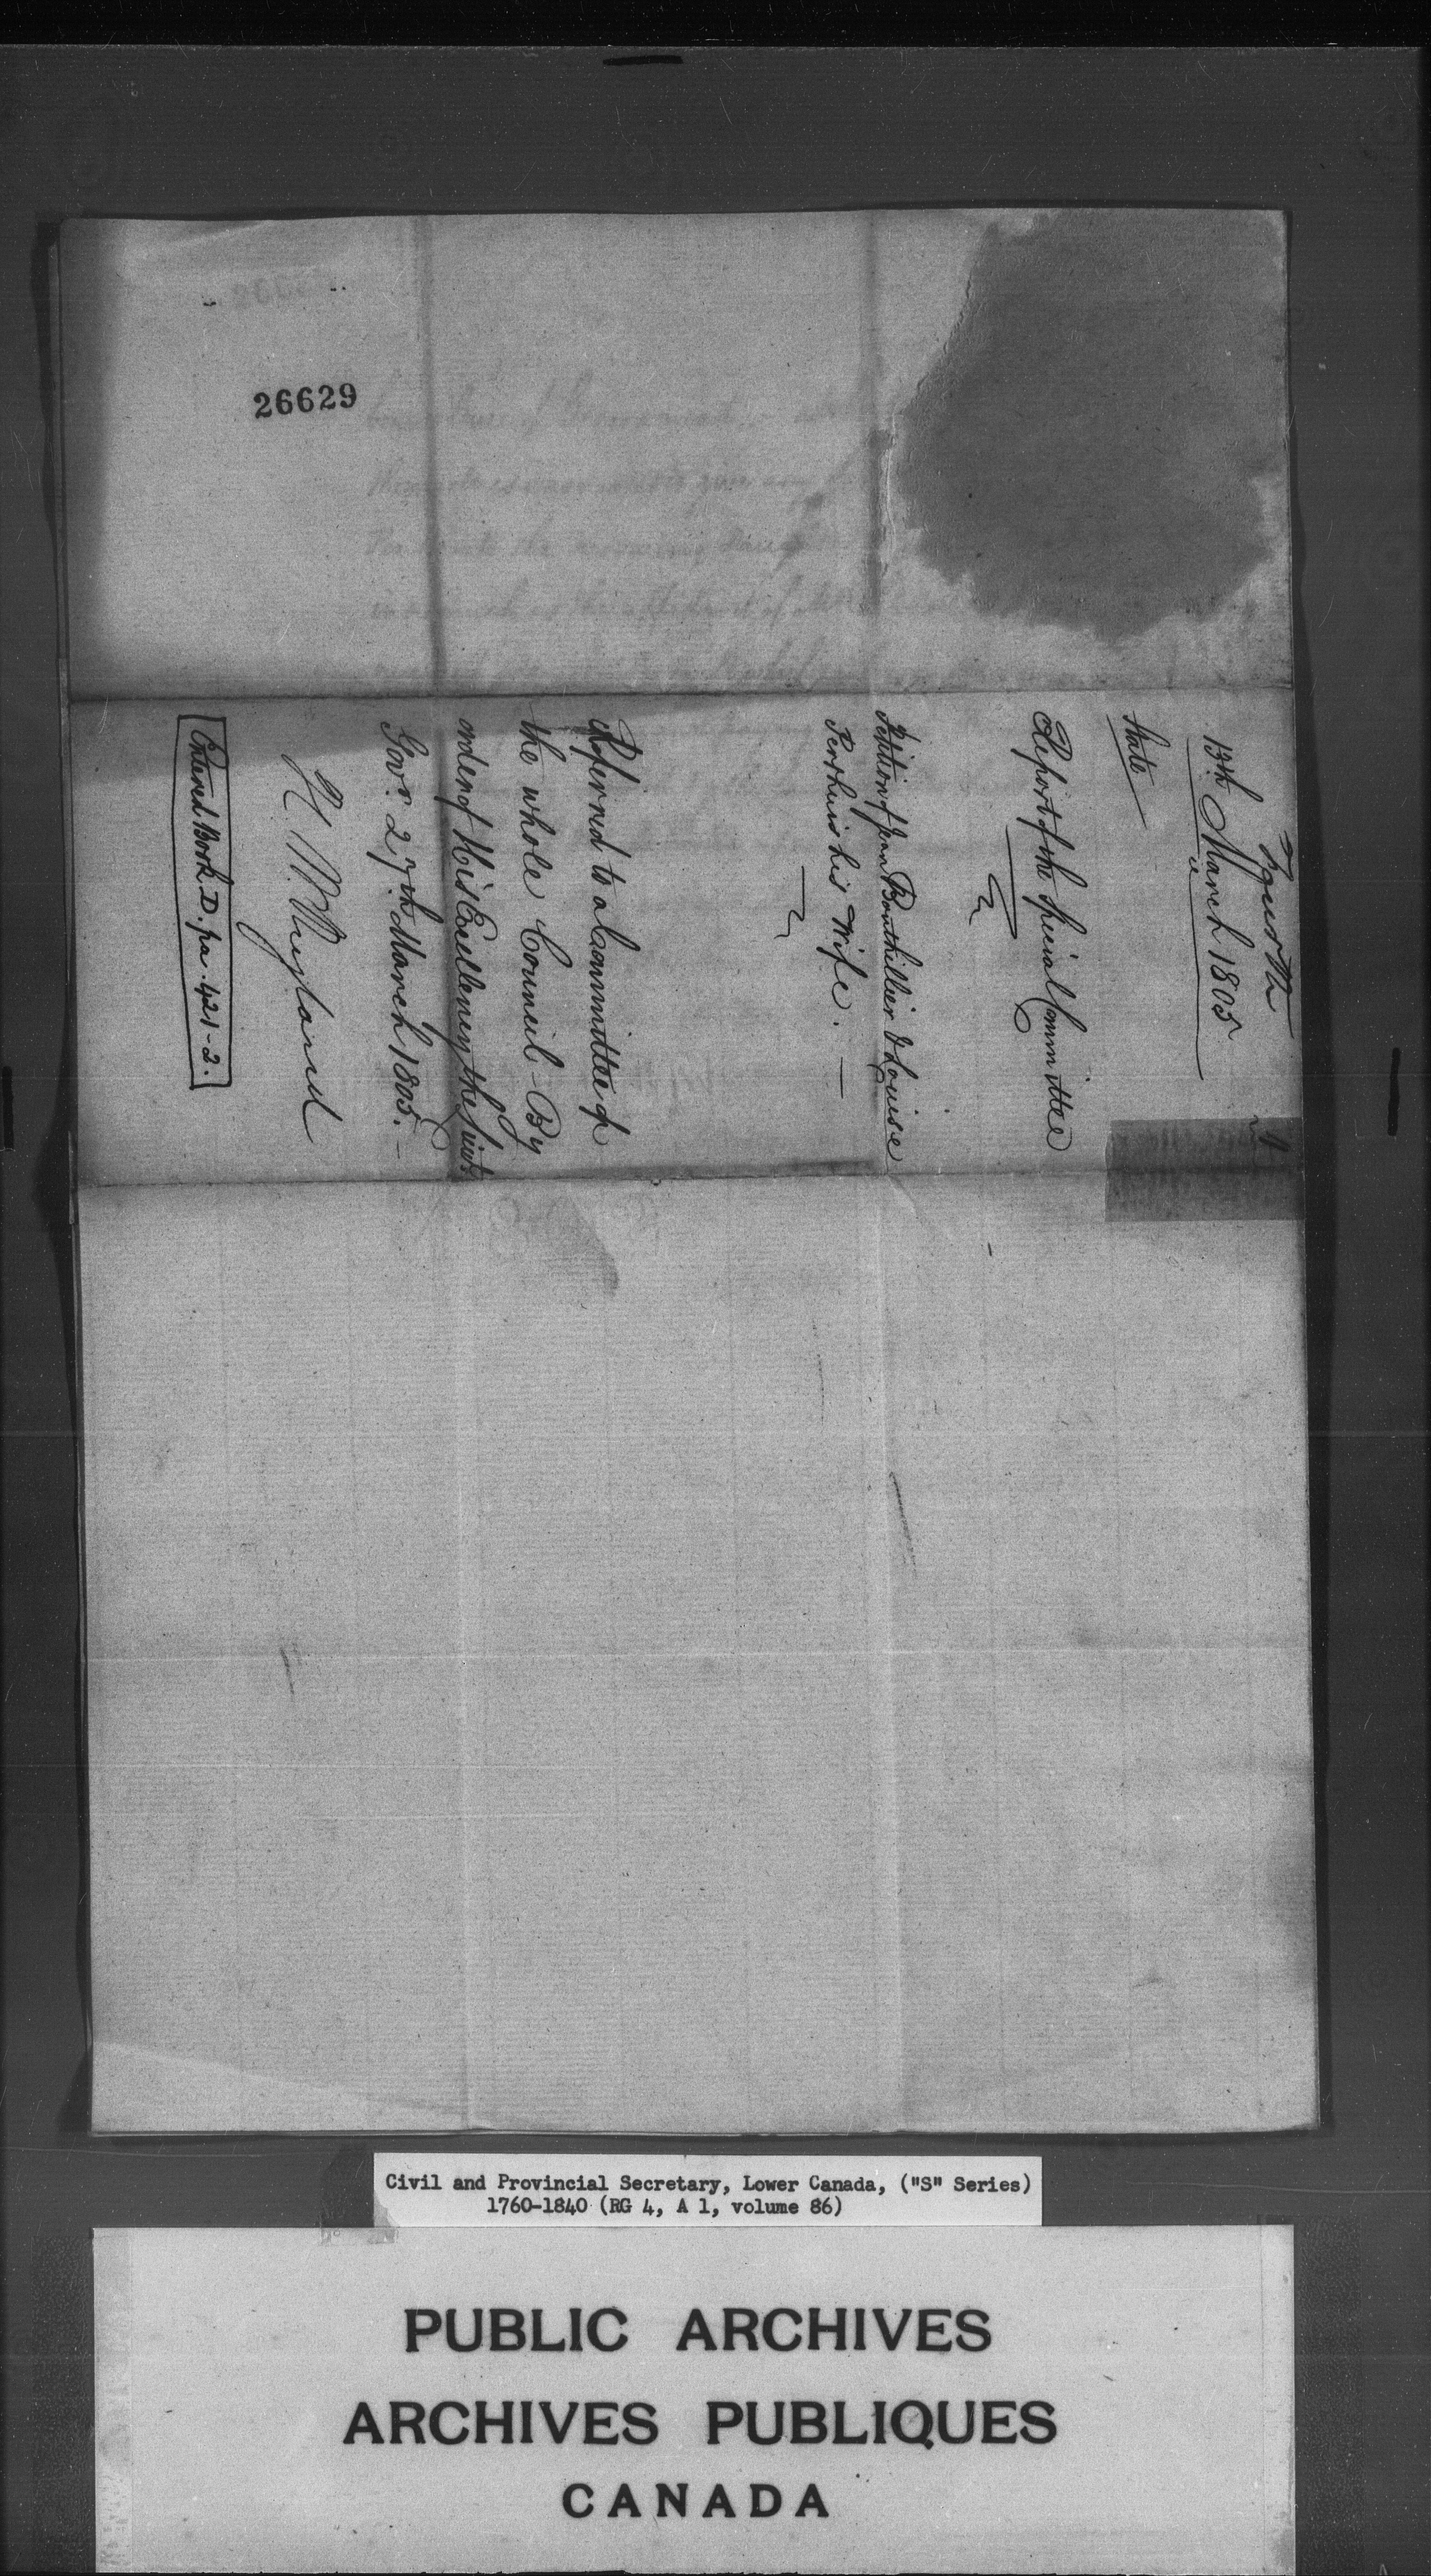 26629
13th March 1805
State
Report of the Special Committee
Petition of Jean Bouthillier & Louise
Perthuis his Wife. —
Referred to a Committee of
the whole Council - By
order of His Excellency the Lieut.
Govr. 27th March 1805. —
H W Ryland
Entered Book D. pa. 421-2.
Civil and Provincial Secretary, Lower Canada, ("S" Series)
1760-1840 (RG 4, A 1, volume 86)
PUBLIC ARCHIVES
ARCHIVES PUBLIQUES
CANADA